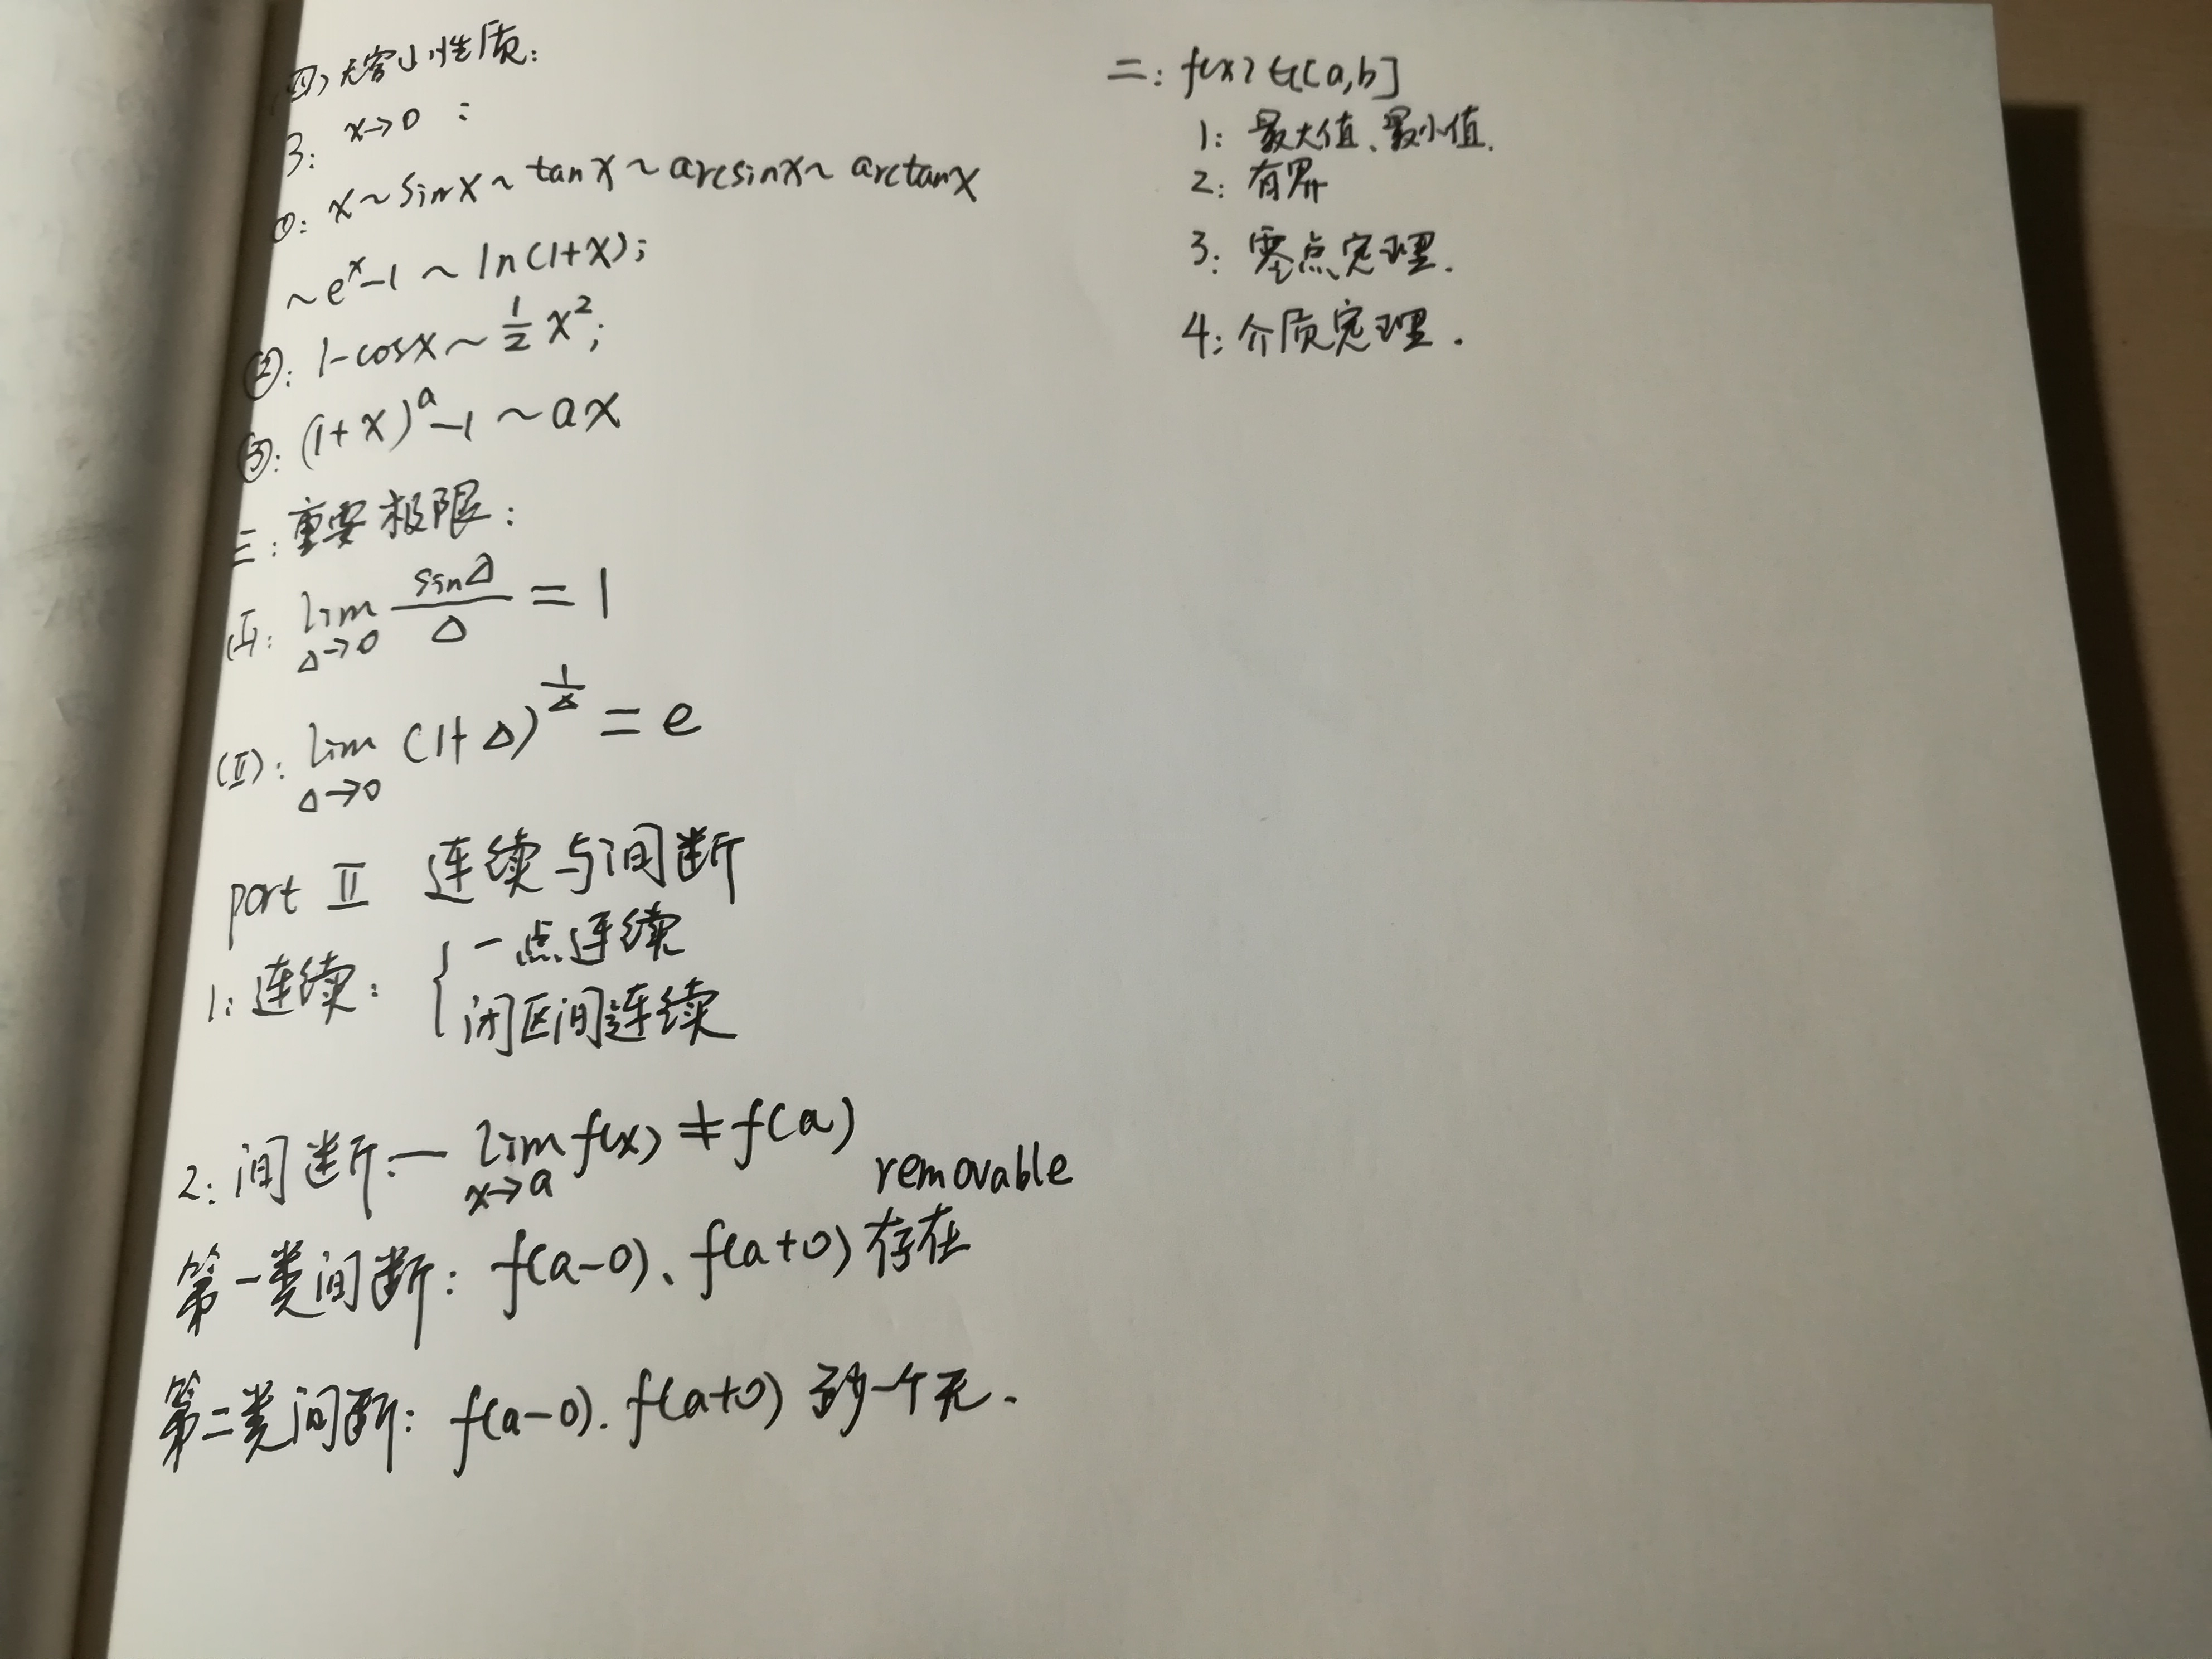 (四) 无穷小性质:
3: x→0 :
①: x~sinx~tanx~arcsinx~arctanx
~e^x-1~ln(1+x);
②: 1-cosx~\frac{1}{2}x^2;
③: (1+x)^a-1~ax
三: 重要极限:
(I): \lim_{Δ→0} \frac{sinΔ}{Δ} = 1
(II): \lim_{Δ→0} (1+Δ)^{\frac{1}{Δ}} = e
part II 连续与间断
1: 连续: { 一点连续
闭区间连续
2: 间断:— \lim_{x→a} f(x) ≠ f(a)
removable
第一类间断: f(a-0)、f(a+0) 存在
第二类间断: f(a-0). f(a+0) 至少一个无.
二: f(x) ∈ C[a,b]
1: 最大值、最小值.
2: 有界
3: 零点定理.
4: 介质定理.